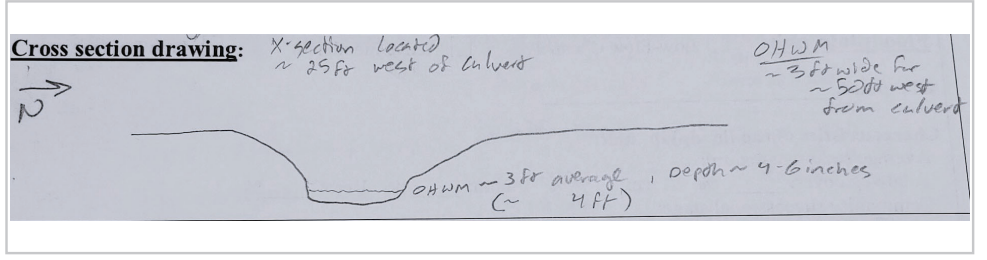 Cross section drawing: X-section located
~ 25ft west of culvert
OHWM
~ 3ft wide for
~ 50ft west
from culvert
N
OHWM ~ 3ft average, Depth ~ 4-6 inches
(~ 4ft)